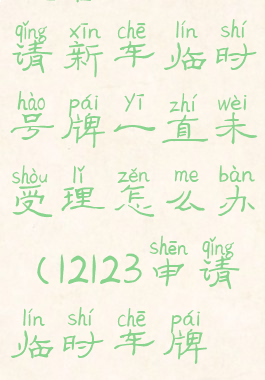 qǐng xīn chē lín shí
请新车临时
hào pái yī zhí wèi
号牌一直未
shòu lǐ zěn me bàn
受理怎么办
shēn qǐng
(12123申请
lín shí chē pái
临时车牌